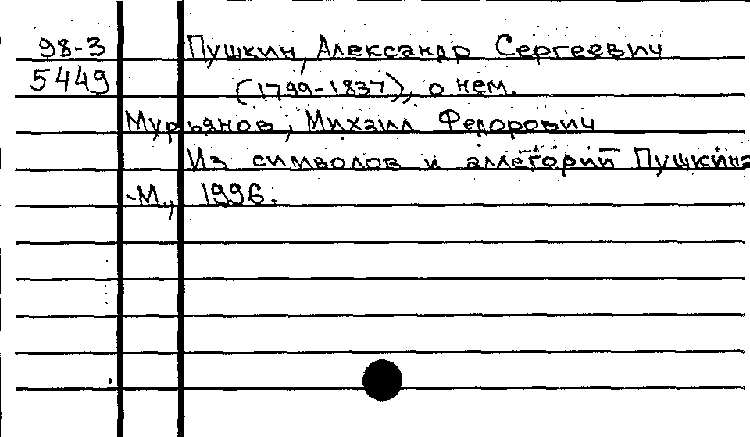 98-3 Пушкин, Александр Сергеевич
5449 (1799-1837), о нем.
Мурьянов, Михаил Федорович
Из символов и аллегорий Пушкина
-М., 1996.